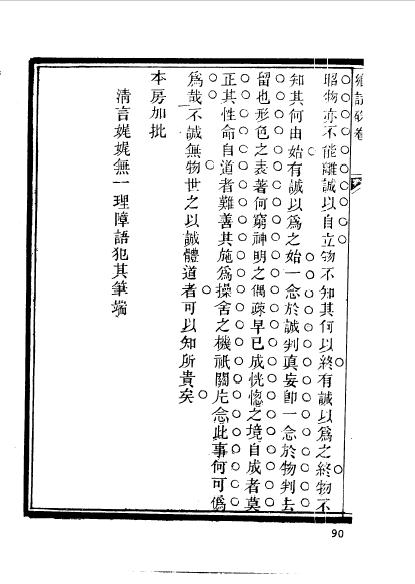 鄉試硃卷
昭物亦不能離誠以自立物不知其何以終有誠以爲之終物不
知其何由始有誠以爲之始一念於誠判眞妄卽一念於物判去
留也形色之表著何窮神明之偶疎早已成恍惚之境自成者莫
正其性命自道者難善其施爲操舍之機祇關片念此事何可僞
爲哉不誠無物世之以誠體道者可以知所貴矣
本房加批
清言娓娓無一理障語犯其筆端
90